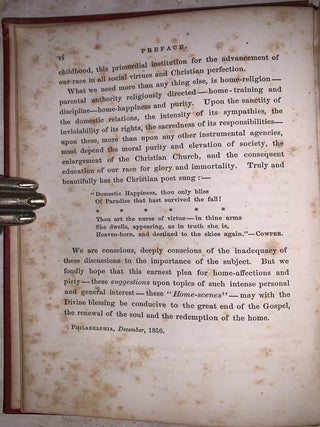 vi PREFACE.
childhood, this primordial institution for the advancement of
our race in all social virtues and Christian perfection.
What we need more than any thing else, is home-religion—
parental authority religiously directed—home-training and
discipline—home-happiness and purity. Upon the sanctity of
the domestic relations, the intensity of its sympathies, the
inviolability of its rights, the sacredness of its responsibilities—
upon these, more than upon any other instrumental agencies,
must depend the moral purity and elevation of society, the
enlargement of the Christian Church, and the consequent
education of our race for glory and immortality. Truly and
beautifully has the Christian poet sung:—
"Domestic Happiness, thou only bliss
Of Paradise that hast survived the fall!
* * * * * *
Thou art the nurse of virtue—in thine arms
She dwells, appearing, as in truth she is,
Heaven-born, and destined to the skies again."—COWPER.
We are conscious, deeply conscious of the inadequacy of
these discussions to the importance of the subject. But we
fondly hope that this earnest plea for home-affections and
piety—these suggestions upon topics of such intense personal
and general interest—these "Home-scenes"—may with the
Divine blessing be conducive to the great end of the Gospel,
the renewal of the soul and the redemption of the home.
PHILADELPHIA, December, 1856.